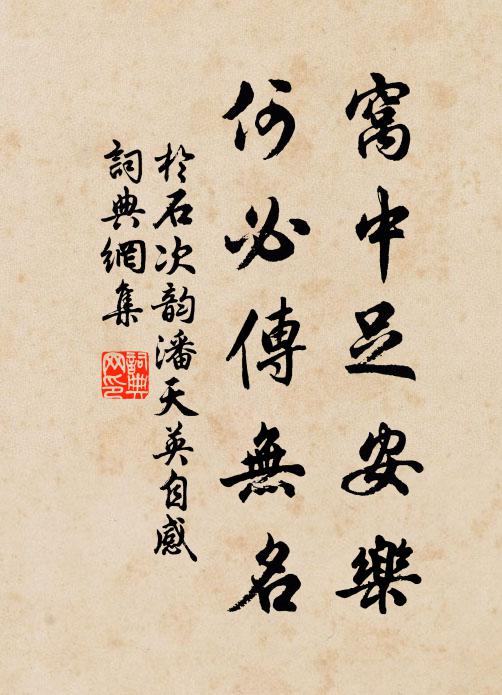 窩中足安樂
何必傳無名
於石次韵潘天英自感
詞典網集
詞典网印